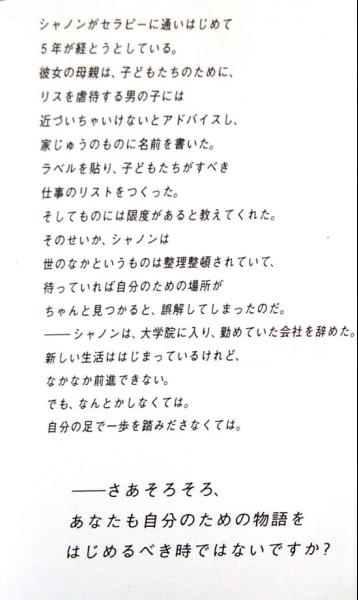 シャノンがセラピーに通いはじめて
5年が経とうとしている。
彼女の母親は、子どもたちのために、
リスを虐待する男の子には
近づいちゃいけないとアドバイスし、
家じゅうのものに名前を書いた。
ラベルを貼り、子どもたちがすべき
仕事のリストをつくった。
そしてものには限度があると教えてくれた。
そのせいか、シャノンは
世のなかというものは整理整頓されていて、
待っていれば自分のための場所が
ちゃんと見つかると、誤解してしまったのだ。
――シャノンは、大学院に入り、勤めていた会社を辞めた。
新しい生活ははじまっているけれど、
なかなか前進できない。
でも、なんとかしなくては。
自分の足で一歩を踏みださなくては。
――さあそろそろ、
あなたも自分のための物語を
はじめるべき時ではないですか?